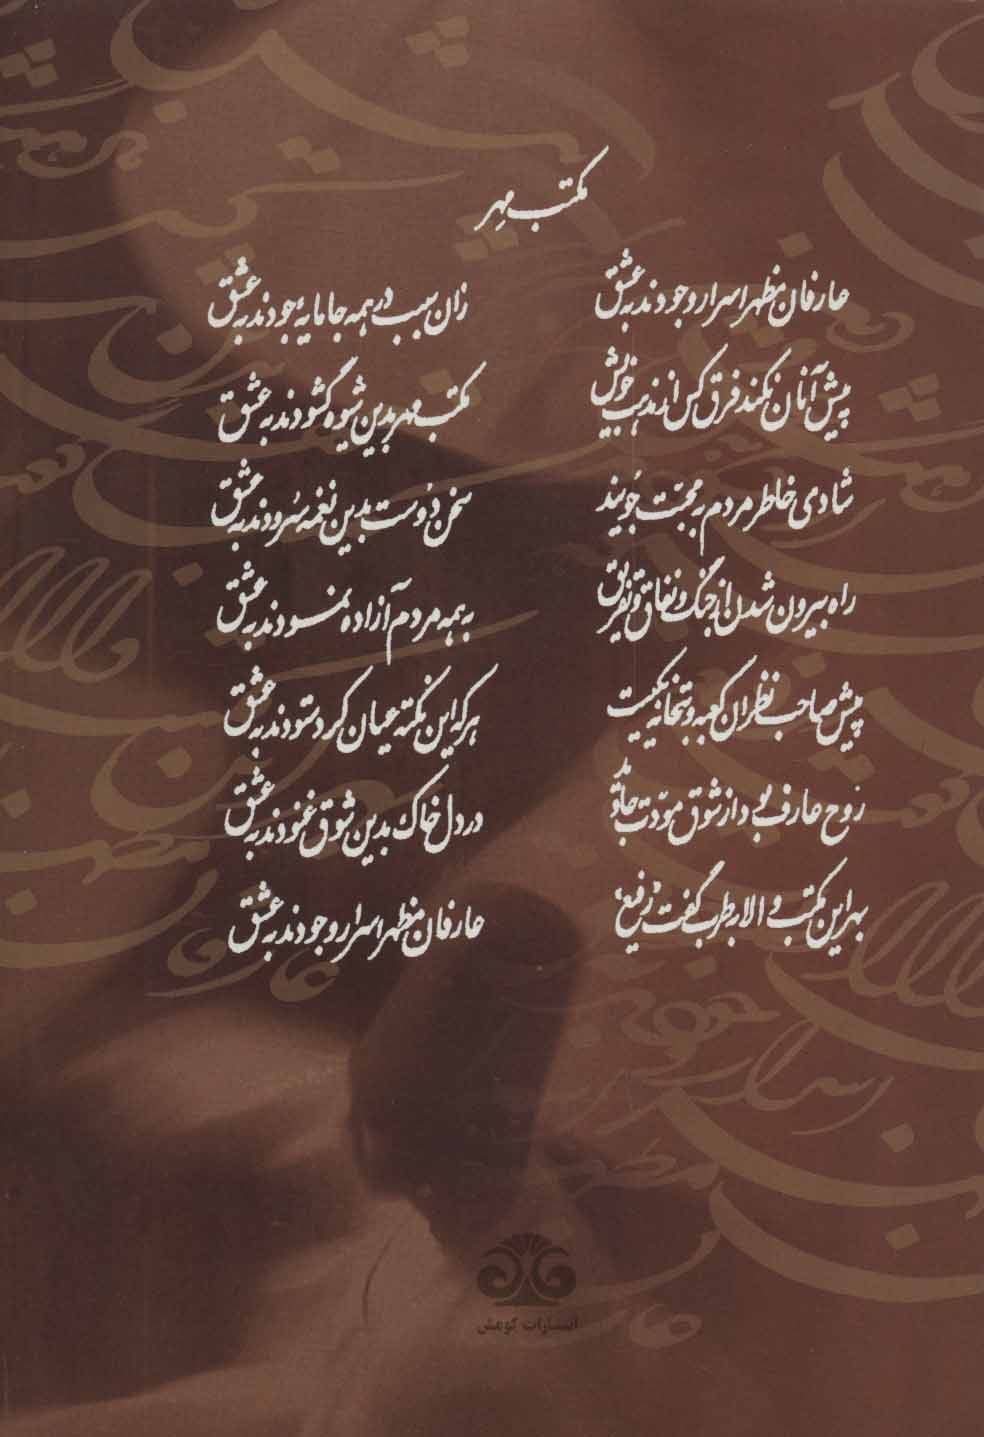 مکتب مهر
عارفان مظهر اسرار وجودند به عشق زان سبب در همه جا مایهٔ جودند به عشق
پیش آنان نکند فرق کس از مذهب خویش مکتب مهر بدین شیوه گشودند به عشق
شادی خاطر مردم به محبّت جویند سخن دوست بدین نغمه سُرودند به عشق
راه بیرون شدن از جنگ و نفاق و تفریق به همه مردم آزاده نمودند به عشق
پیش صاحب نظران کعبه و بتخانه یکیست هر که این نکته عیان کرد ستودند به عشق
رُوح عارف بود از شوق مودّت جاوید در دل خاک بدین شوق غنودند به عشق
بهر این مکتب والا به طرب گفت «رفیع» عارفان مظهر اسرار وجودند به عشق
انتشارات کومش